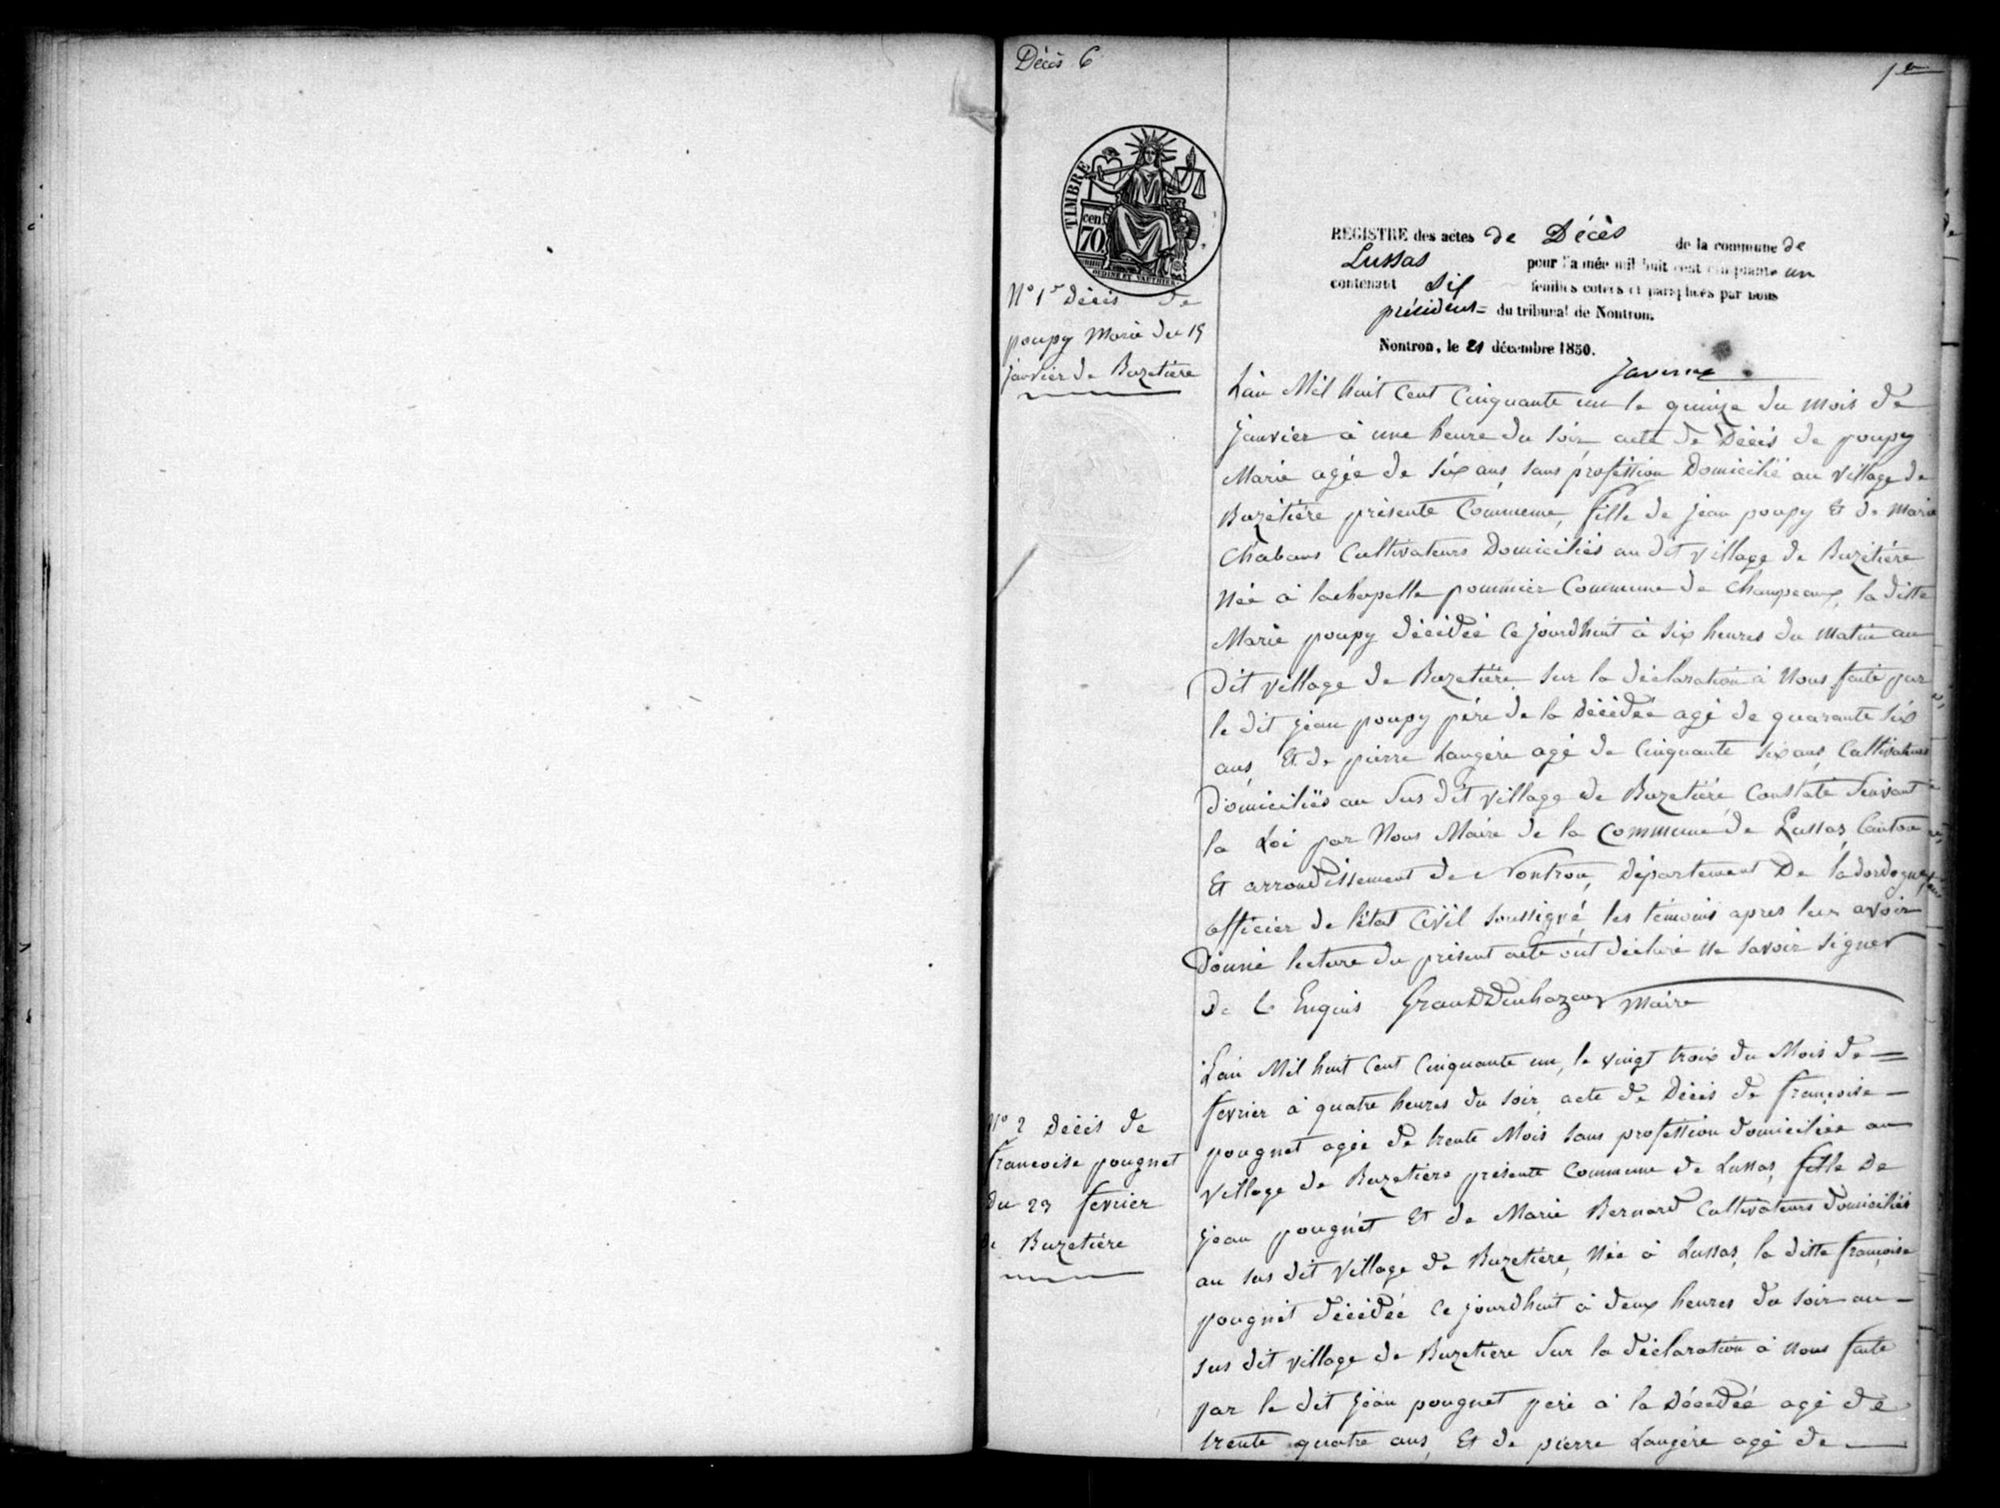 Décès 6
1er
TIMBRE
cen.
70
OUDINE ET VAUTHIER
REGISTRE des actes de Décès de la commune de
Lussas pour l'année mil huit cent cinquante un
contenant Dix feuilles cotées et paraphées par nous
président du tribunal de Nontron.
Nontron, le 21 décembre 1850.
Javerne
N° 1er Décès de
poupy Marie du 15
janvier de Buzetière
L'an Mil huit Cent Cinquante un le quinze du mois de
janvier à une heure du soir acte de Décès de poupy
Marie agée de six ans, sans profession Domicilié au village de
Buzétière présente Commune, fille de jean poupy Et de Marie
Chabans Cultivateurs Domiciliés au dit village de Buzétière
Née à lachapelle pommier Commune de Champeaux, la ditte
Marie poupy décédée ce jourdhuit à six heures du matin au
dit village de Buzetière, sur la déclaration à Nous faite par
le dit jean poupy père de la Décédée agé de quarante six
ans, Et de pierre Laugère agé de Cinquante six ans, Cultivateurs
domiciliés au sus dit village de Buzetière, Constaté suivant
la Loi par Nous Maire de la Commune de Lussas, Canton
Et arrondissement de Nontron, département De la dordogne,
officier de l'état Civil soussigné, les témoins apres leur avoir
donné lecture du présent acte ont déclaré ne savoir signer
de Ce Enquis Maire
N° 2 Décès de
francoise pougnet
du 23 fevrier
de Buzetière
L'an Mil huit Cent Cinquante un, le vingt trois du Mois de
fevrier à quatre heures du soir, acte de Décès de françoise
pougnet agée de trente Mois sans profession domiciliée au
village de Buzetière présente Commune de Lussas, fille de
jean pougnet Et de Marie Bernard Cultivateurs domiciliés
au sus dit village de Buzetière, Née à Lussas, la ditte françoise
pougnet décédée ce jourdhuit à deux heures du soir au
sus dit village de Buzetière sur la déclaration à nous faite
par le dit jean pougnet père à la Décédée agé de
trente quatre ans, Et de pierre Laugère agé de